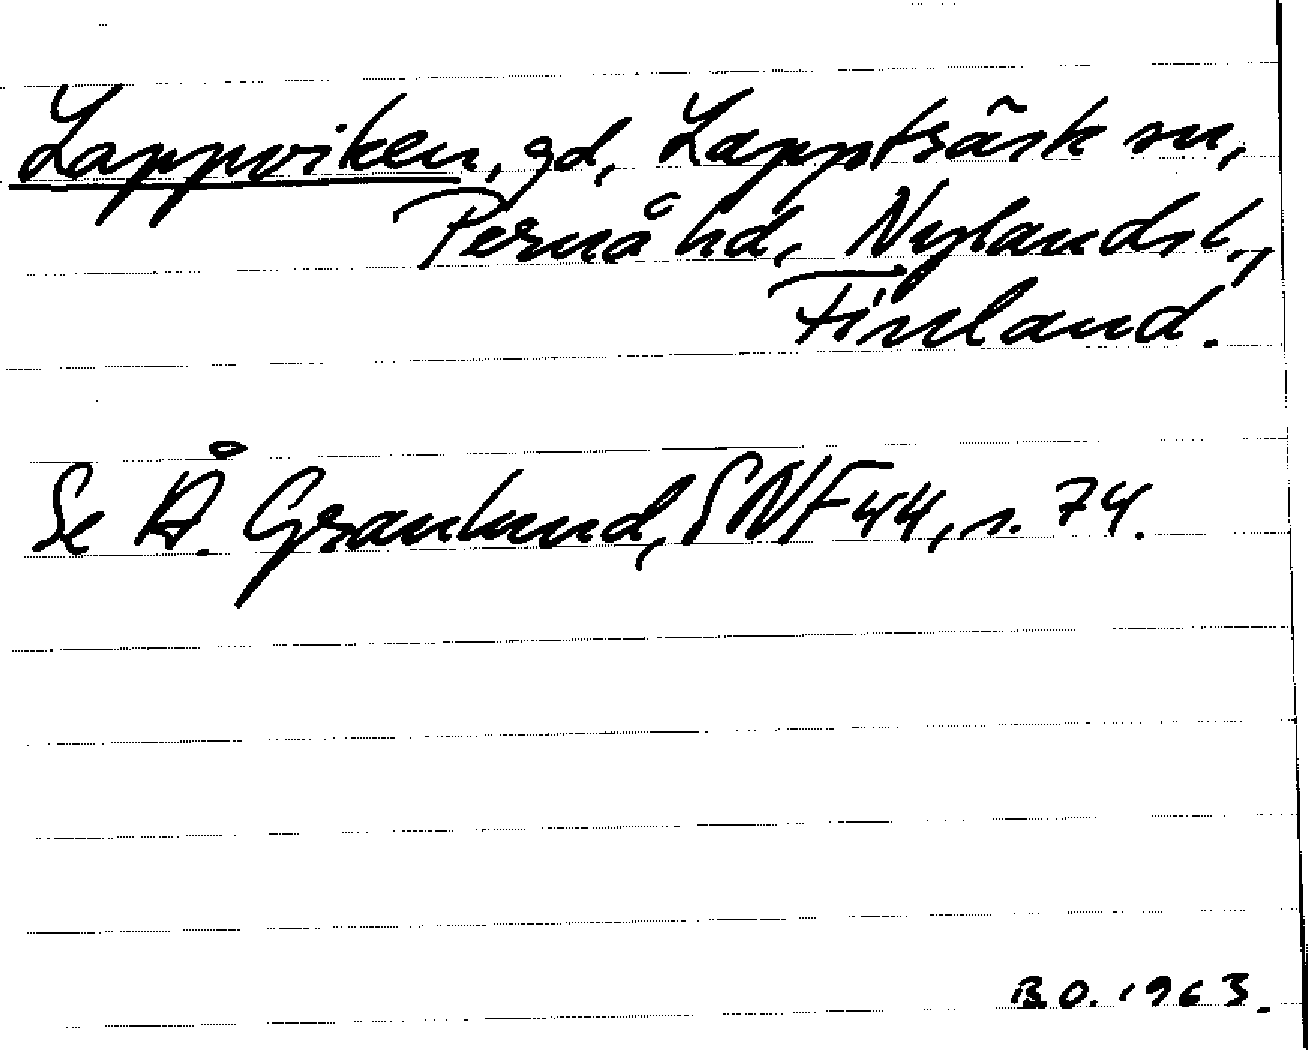 Lappviken, gd, Lappträsk sn,
Pernå hd, Nylands l.,
Finland.
Se Å. Granlund, SNF 44, s. 74.
B.O. 1963.